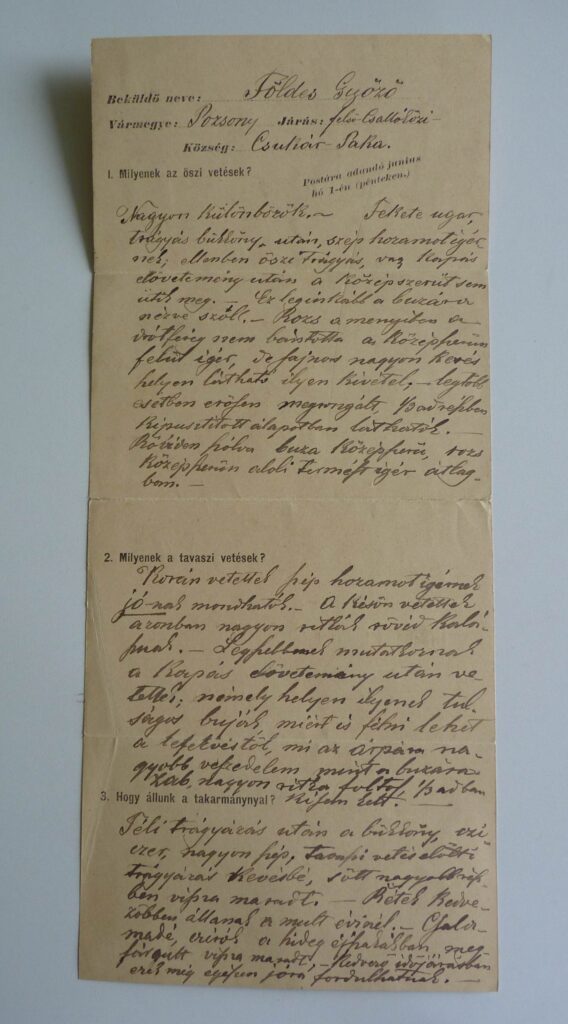 Beküldő neve: Földes Győző
Vármegye: Pozsony Járás: felső-Csallóközi-
Község: Csukár-Paka.
1. Milyenek az őszi vetések?
Postára adandó junius
hó 1-én (pénteken.)
Nagyon különbözők. – Fekete ugar,
trágyás bükköny után, szép hozamot igér-
nek; ellenben őszi trágyás, vagy kapás
elővetemény után a középszerüt sem
ütik meg. – Ez leginkább a buzára
nézve szóll. – Rozs a menyiben a
drótféreg nem bántotta a középszerün
felül igér, de fajnos nagyon kevés
helyen látható ilyen kivétel, – legtöbb
esetben erősen megrongált, szádrészben
kipusztitott álapotban láthatók. –
Röviden szólva buza középszerü, rozs
középszerün aloli termést igér átlag-
ban. –
2. Milyenek a tavaszi vetések?
Korán vetettek szép hozamot igérnek
jó-nak mondhatók. – A későn vetettek
azonban nagyon ritkák rövid kalá-
szuak. – Legszebbnek mutatkoznak
a kapás elővetemény után ve-
tettek; némely helyen ilyenek tul-
ságos buják miért is félni lehet
a lefekvéstől, mi az árpára na-
gyobb veszedelem mint a buzára
Zab, nagyon ritka foltos,
3. Hogy állunk a takarmánynyal?
Téli trágyázás után a bükköny,
nagyon szép, tavaszi vetés előtti
trágyázás kevésbé, sőtt nagyobb rész-
ben viszsa maradt. – Rétek kedve-
zőbben állanak a mult évinél. – Csala-
madé, cirok a hideg éjszakákban meg
viszsa maradt, – kedvező időjárásban
ezek még egészen jóra fordulhatnak. –